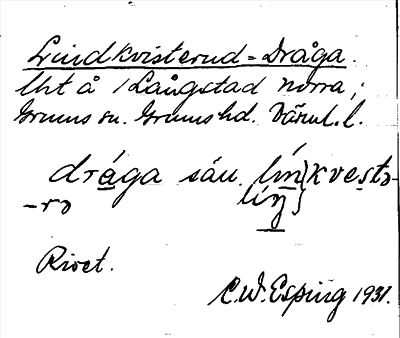 Lindkvisterud = Dråga.
Uht å /Långstad norra;
Grums sn. Grums hd. Värml. l.
drága sáu lín}kvestə-
-rə líŋ}
Rivet.
C.W. Esping 1931.